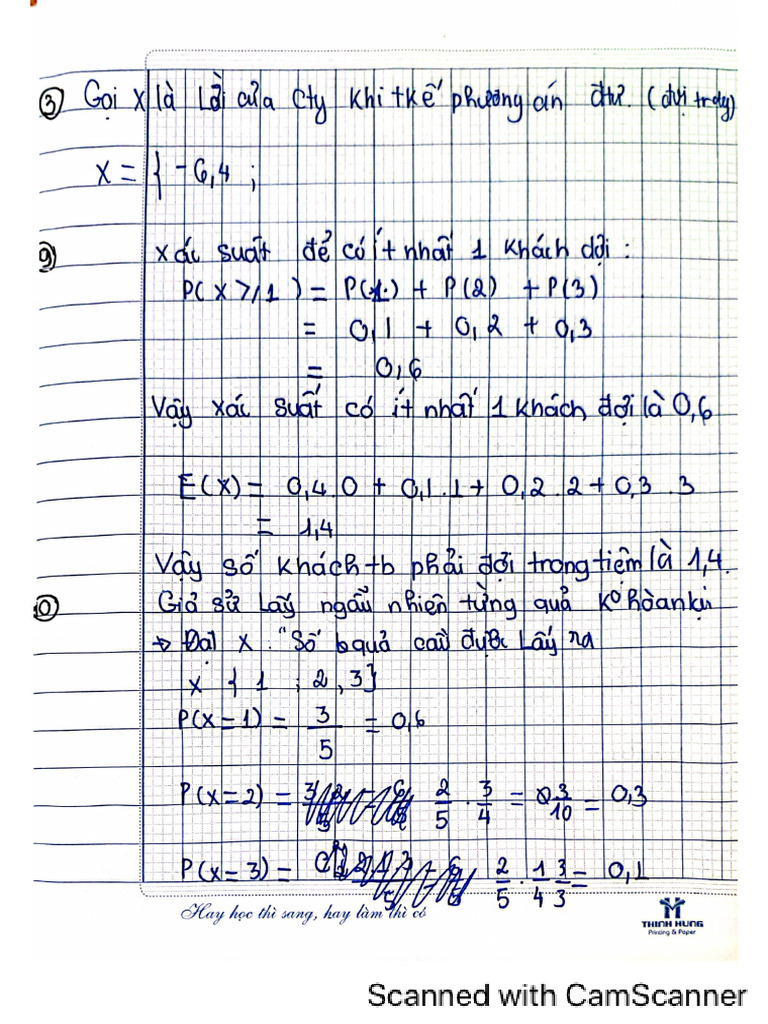 ③ Gọi X là Lời của Cty khi tkế phương án đtư. (đvị trđy)
X = { -6,4 ;
9) Xác suất để có ít nhất 1 khách đợi :
P( X >/ 1 ) = P(1) + P(2) + P(3)
= 0,1 + 0,2 + 0,3
= 0,6
Vậy xác suất có ít nhất 1 khách đợi là 0,6
E(X) = 0,4.0 + 0,1.1 + 0,2.2 + 0,3.3
= 1,4
Vậy số khách tb phải đợi trong tiệm là 1,4.
10) Giả sử lấy ngẫu nhiên từng quả ko hoàn lại
→ Đặt X : "Số quả cầu được lấy ra
X { 1 ; 2 , 3 }
P(X=1) = 3/5 = 0,6
P(X=2) = 2/5 . 3/4 = 3/10 = 0,3
P(X=3) = 2/5 . 1/4 3/3 = 0,1
Hay học thì sang, hay làm thì có
THINH HUNG
Printing & Paper
Scanned with CamScanner